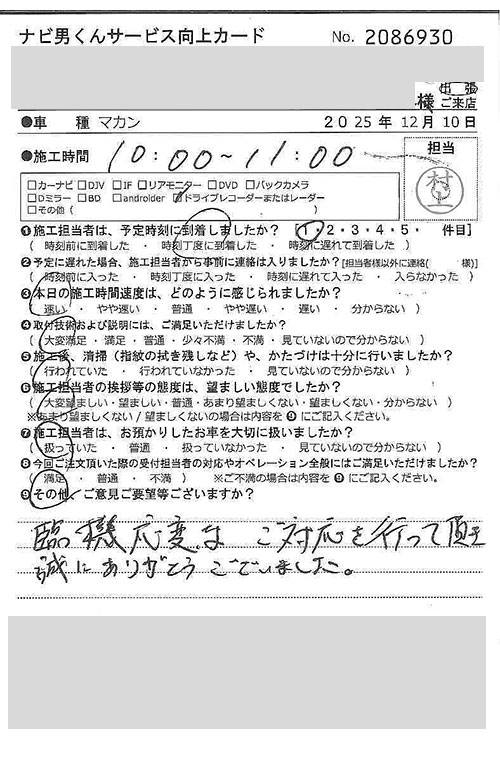 ナビ男くんサービス向上カード No. 2086930
様 出張 ご来店
●車 種 マカン 2025年 12月 10日
●施工時間 10:00~11:00 担当
□カーナビ □DJV □IF □リアモニター □DVD □バックカメラ
□Dミラー □BD □androider ☑ドライブレコーダーまたはレーダー
□その他 ( )
❶施工担当者は、予定時刻に到着しましたか? [1・2・3・4・5・ 件目]
( 時刻前に到着した ・ 時刻丁度に到着した ・ 時刻に遅れて到着した )
❷予定に遅れた場合、施工担当者から事前に連絡は入りましたか?[担当者様以外に連絡( 様)]
( 時刻前に入った ・ 時刻丁度に入った ・ 時刻に遅れて入った ・ 入らなかった )
❸本日の施工時間速度は、どのように感じられましたか?
( 速い ・ やや速い ・ 普通 ・ やや遅い ・ 遅い ・ 分からない )
❹取付技術および説明には、ご満足いただけましたか?
( 大変満足 ・ 満足 ・ 普通 ・ 少々不満 ・ 不満 ・ 見ていないので分からない )
❺施工後、清掃(指紋の拭き残しなど)や、かたづけは十分に行いましたか?
( 行われていた ・ 行われていなかった ・ 見ていないので分からない )
❻施工担当者の挨拶等の態度は、望ましい態度でしたか?
( 大変望ましい・望ましい・普通・あまり望ましくない・望ましくない・分からない )
※あまり望ましくない / 望ましくないの場合は内容を ❾ にご記入ください。
❼施工担当者は、お預かりしたお車を大切に扱いましたか?
( 扱っていた ・ 普通 ・ 扱っていなかった ・ 見ていないので分からない )
❽今回ご注文頂いた際の受付担当者の対応やオペレーション全般にはご満足いただけましたか?
( 満足 ・ 普通 ・ 不満 ) ※ご不満の場合は内容を ❾ にご記入ください。
❾その他、ご意見ご要望等ございますか?
臨機応変な ご対応を行って頂き
誠にありがとうございました。